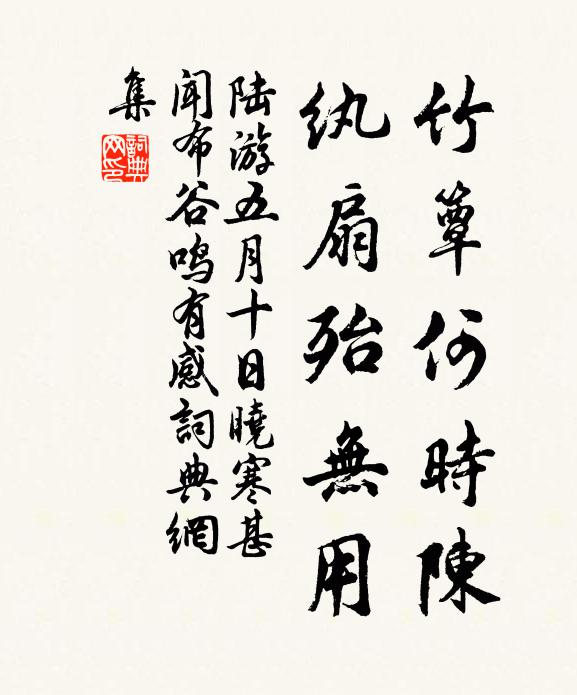 竹簟何時陳
紈扇殆無用
陸游五月十日曉寒甚
聞布谷鳴有感詞典網
集
詞典
网印